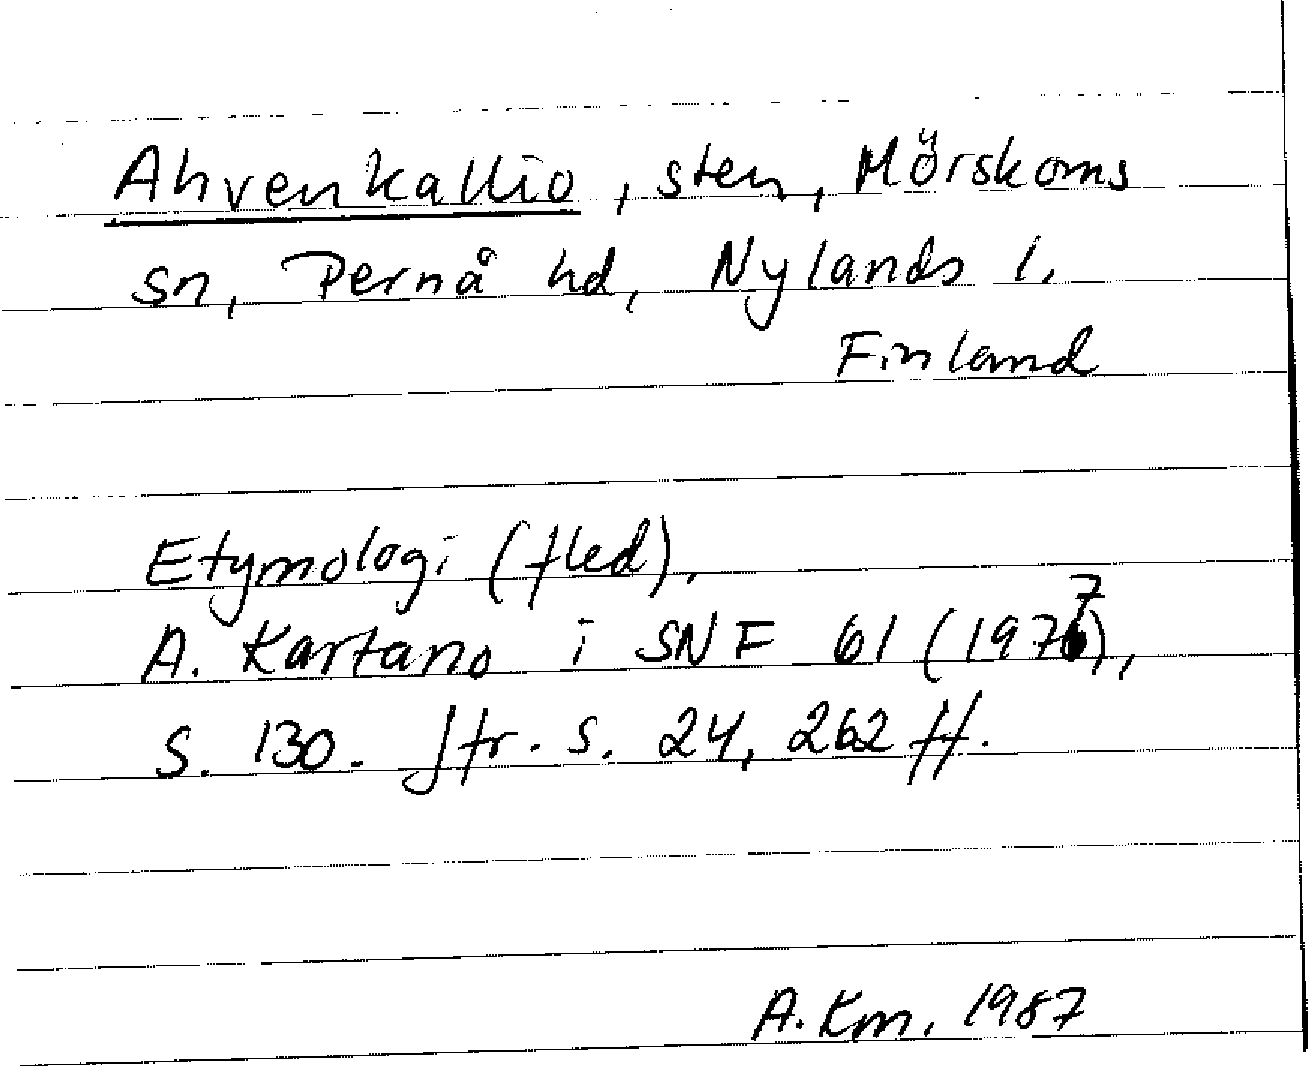 Ahvenkallio, sten, Mörskoms
sn, Pernå hd, Nylands l.
Finland
Etymologi (fled),
A. Kartano i SNF 61 (1977),
s. 130. Jfr. s. 24, 262 ff.
A. Km. 1987